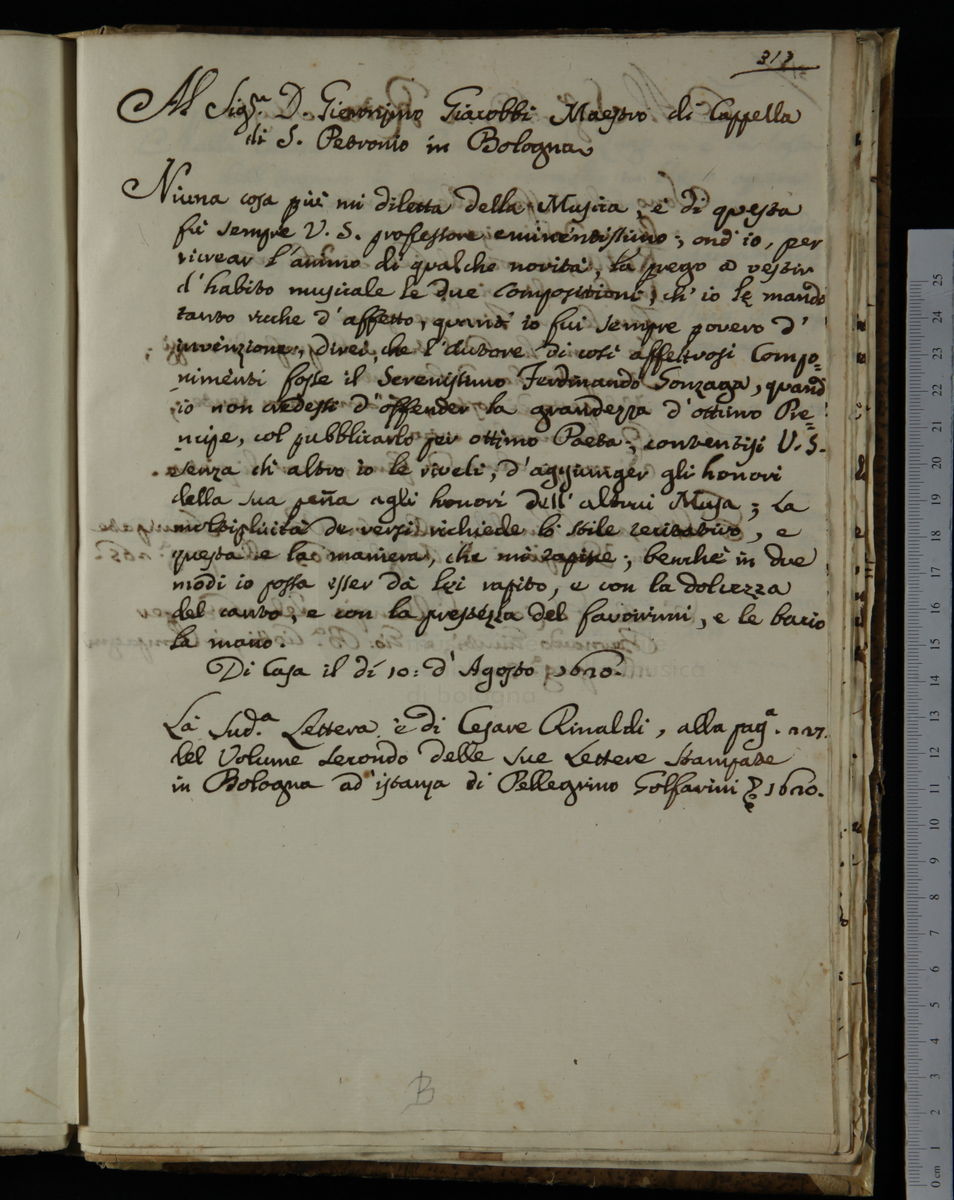 317
Al Sig.ʳᵃ D. Gieronimo Giacobbi Maestro di Cappella
di S. Petronio in Bologna
Niuna cosa più mi diletta della Musica, e di questa
fù sempre V. S. professore eminentissimo; ond'io, per
ricrear l'animo di qualche novità, la prego a vestir
d'habito musicale le due Compositioni, ch'io le mando
tanto ricche d'affetto, quant'io fui sempre povero d'
invenzione, direi, che l'Autore di così affettuosi Compo=
nimenti fosse il Serenissimo Ferdinando Gonzaga, quand'
io non credessi d'offender la grandezza d'ottimo Pre=
ncipe, col pubblicarlo per ottimo Poeta; contentisi V. S.
senza ch'altro io le riveli, d'aggiunger gli honori
della sua peña agli honori dell'altrui Musa; La
moltiplicità de versi richiede lo stile recitativo, e
questa è la maniera, che mi rapisce; benche in due
modi io possa esser da lei rapito, e con la dolcezza
del canto, e con la prestezza del favorirmi, e le bacio
la mano.
Di Casa il dí 10: d'Agosto 1620.
La Sud.ᵃ Lettera è di Cesare Rinaldi, alla pag.ᵃ 227.
del Volume secondo delle sue Lettere Stampate
in Bologna ad istanza di Pellegrino Golfarini 1620.
B
25
24
23
22
21
20
19
18
17
16
15
14
13
12
11
10
9
8
7
6
5
4
3
2
1
0 cm